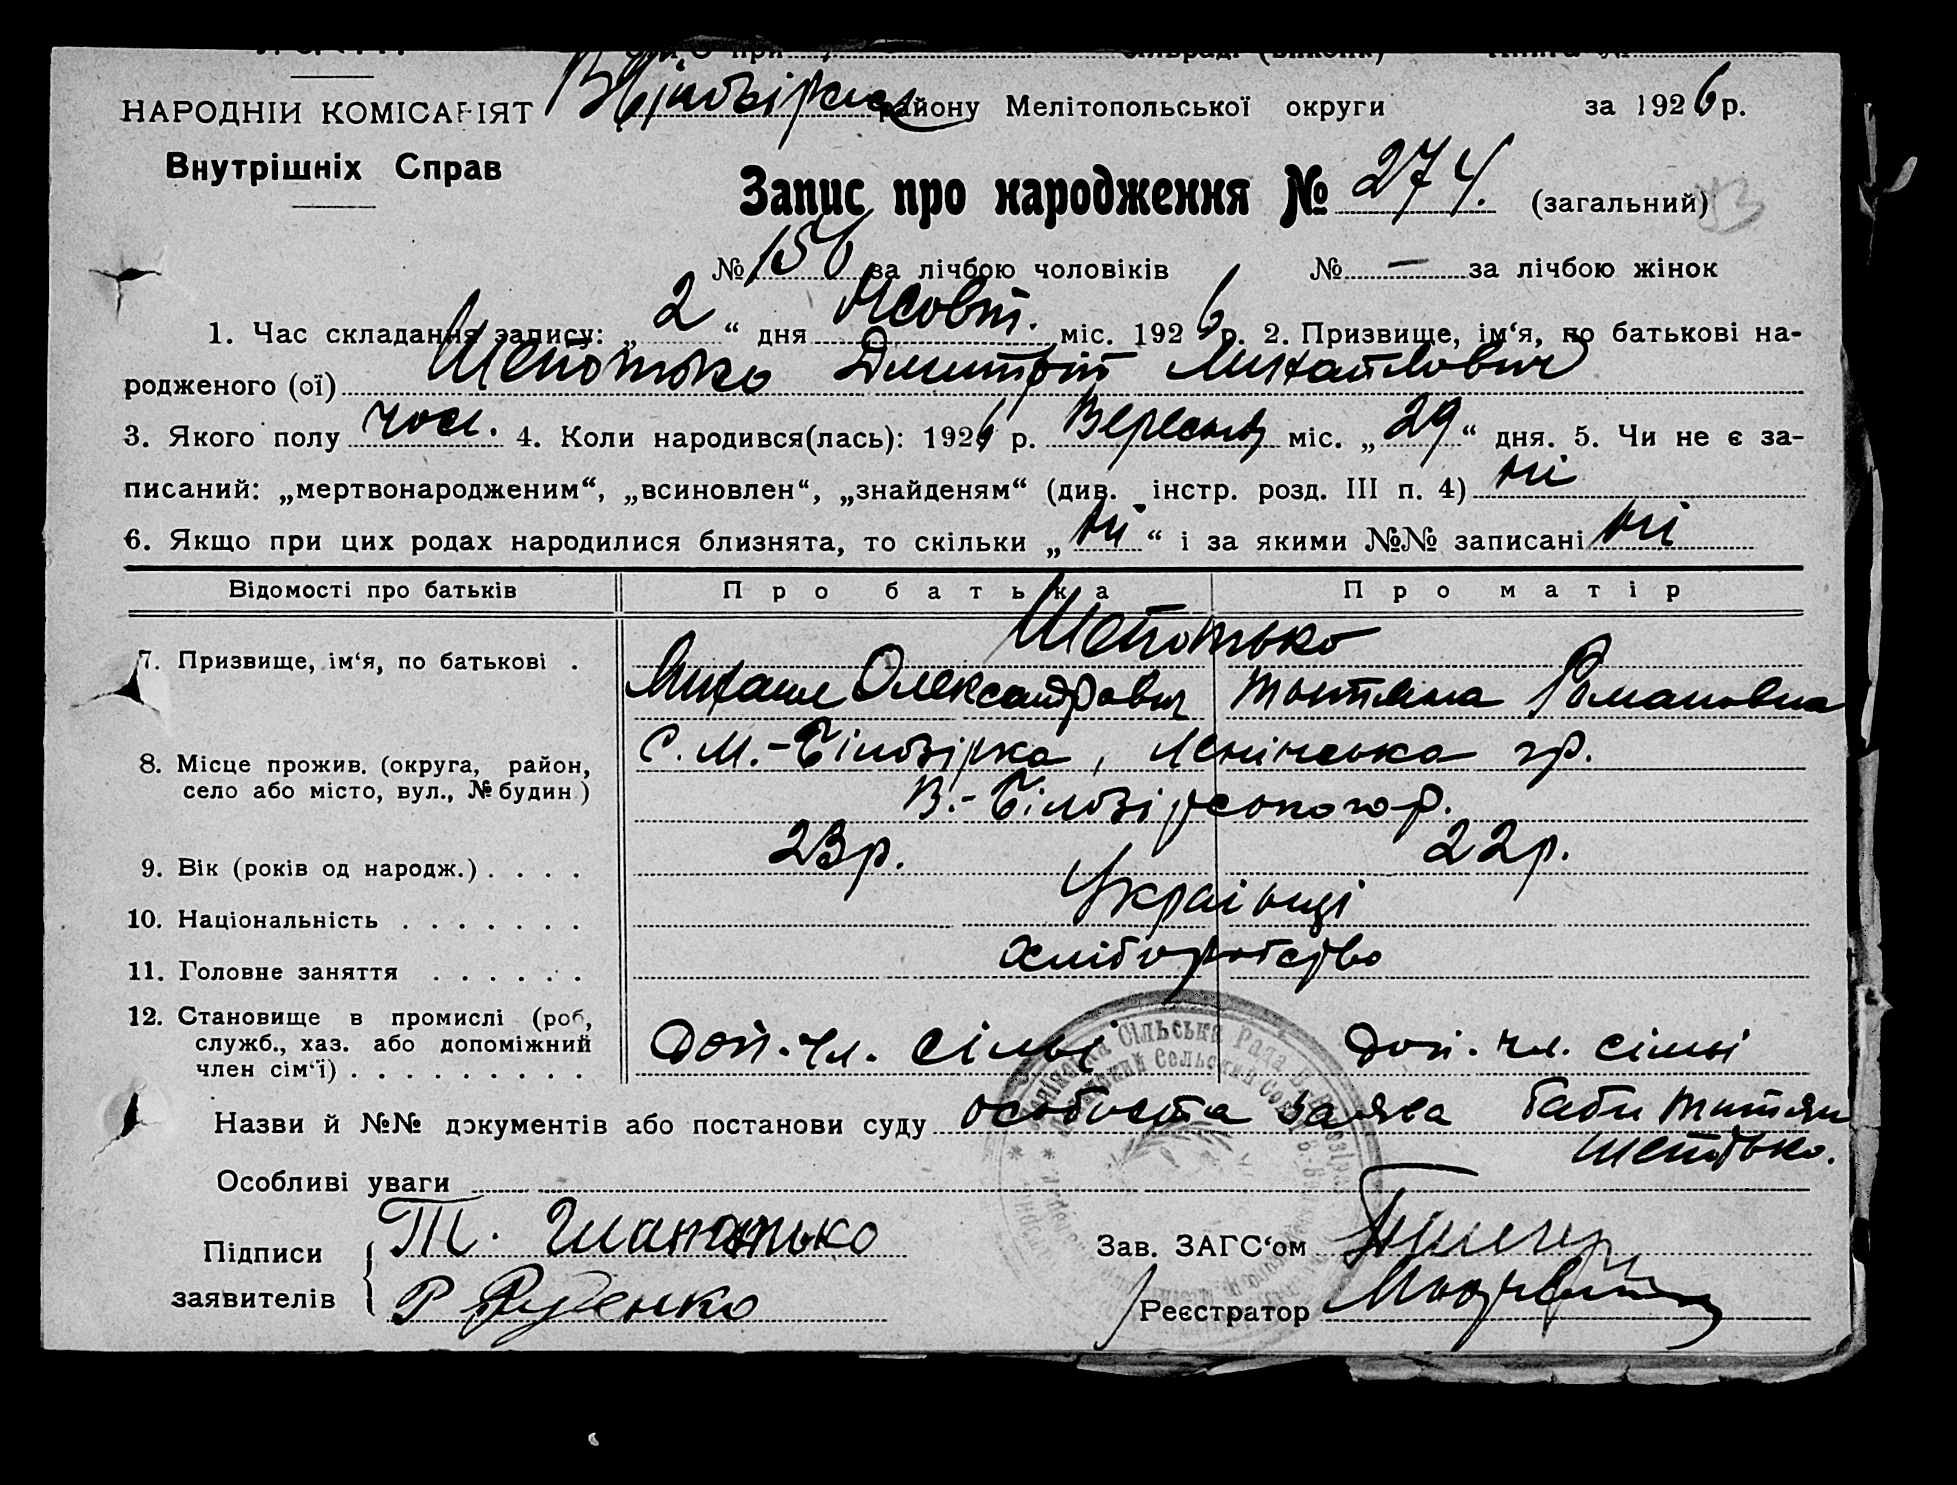 НАРОДНІЙ КОМІСАРІЯТ району Мелітопольської округи за 1926 р.
Внутрішніх Справ
Запис про народження № 274. (загальний)
№ 156 за лічбою чоловіків № — за лічбою жінок
1. Час складання запису: „ 2 “ дня Жовт. міс. 1926 р. 2. Призвище, ім‘я, по батькові на-
родженого (ої) Шепотько Дмитрій Михайлович
3. Якого полу чол. 4. Коли народився(лась): 1926 р. Вересня міс. „ 29 “ дня. 5. Чи не є за-
писаний: „мертвонародженим“, „всиновлен“, „знайденям“ (див. інстр. розд. III п. 4) ні
6. Якщо при цих родах народилися близнята, то скільки „ ні “ і за якими №№ записані ні
Відомості про батьків Про батька Про матір
Шепотько
7. Призвище, ім‘я, по батькові .
Михаил Олександрович Тытяна Романовна
С. М.-Білозірка, Ленінська гр.
8. Місце прожив. (округа, район,
село або місто, вул., № будин.)
В.-Білозірського р.
9. Вік (років од народж.) . . . . 23 р. 22 р.
10. Національність . . . . . . . Українці
11. Головне заняття . . . . . . хліборобство
12. Становище в промислі (роб,
служб., хаз. або допоміжний
член сім‘ї) . . . . . . . . . Доп. чл. сімьі Доп. чл. сімьі
Назви й №№ документів або постанови суду особиста заява баби Титяни
Шепотько.
Особливі уваги
Підписи Т. Шапотько Зав. ЗАГС‘ом
заявителів Р Руденко Реєстратор